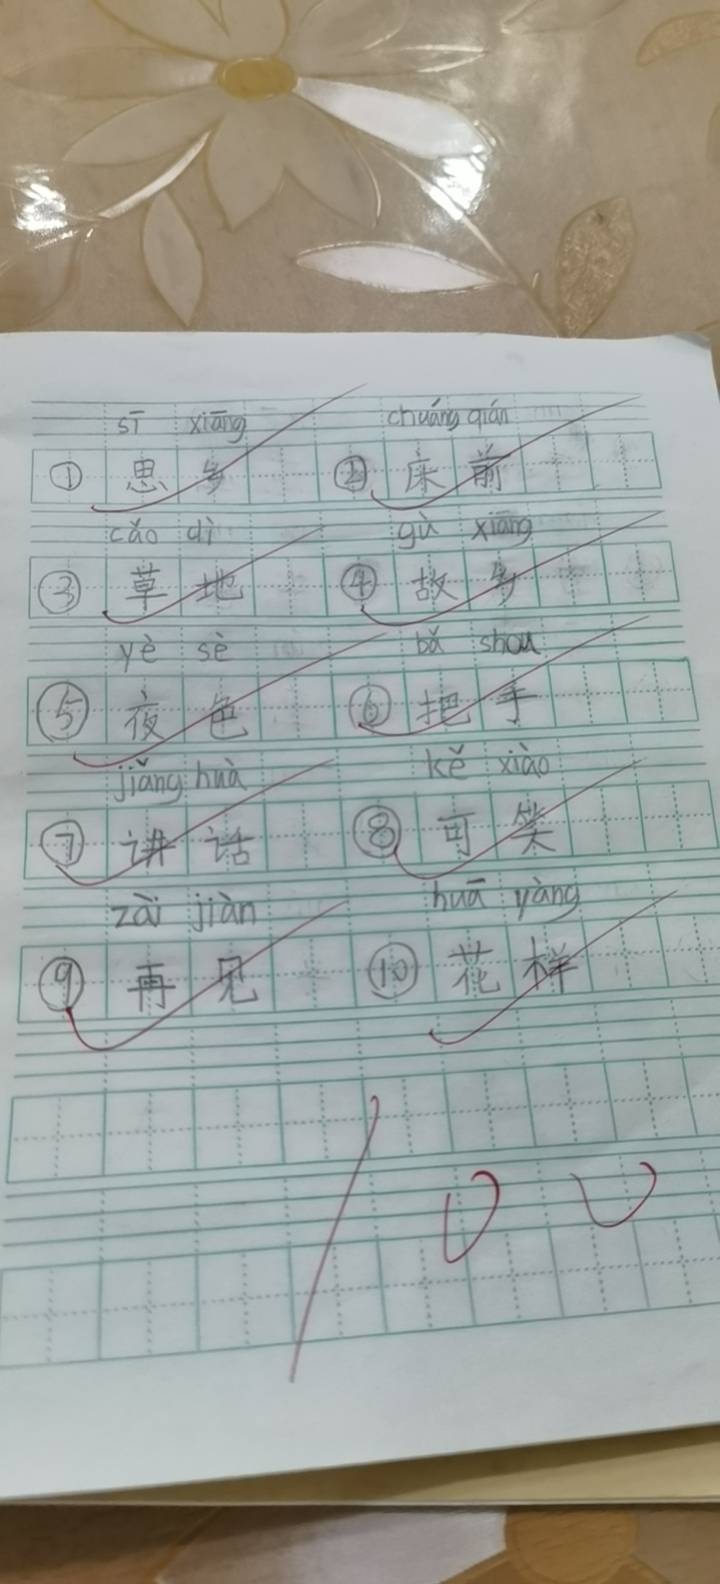 sī xiāng chuáng qián
① 思乡 ② 床前
cǎo dì gù xiāng
③ 草地 ④ 故乡
yè sè bǎ shou
⑤ 夜色 ⑥ 把手
jiǎng huà kě xiào
⑦ 讲话 ⑧ 可笑
zài jiàn huā yàng
⑨ 再见 ⑩ 花样
100